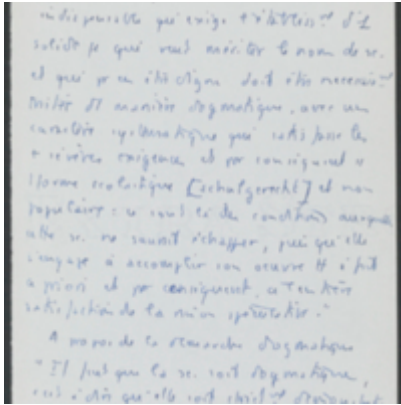 indispensable qui exige l'établiss.mt d'1
solide qui veut mériter le nom de sc.
et qui pr en être digne doit être nécessair.mt
traitée de manière dogmatique, avec un
caractère systématique qui satisfasse les
+ sévères exigences et par conséquent
forme scolastique [schulgerecht] et non
populaire : ce sont là des conditions auxquelles
cette sc. ne saurait échapper, puisqu'elle
s'engage à accomplir son œuvre tt à fait
a priori et par conséquent, à l'entière
satisfaction de la raison spéculative."
A propos de la démarche dogmatique
"Il faut que la sc. soit dogmatique,
c'est à dire qu'elle soit strict.mt démonstrat